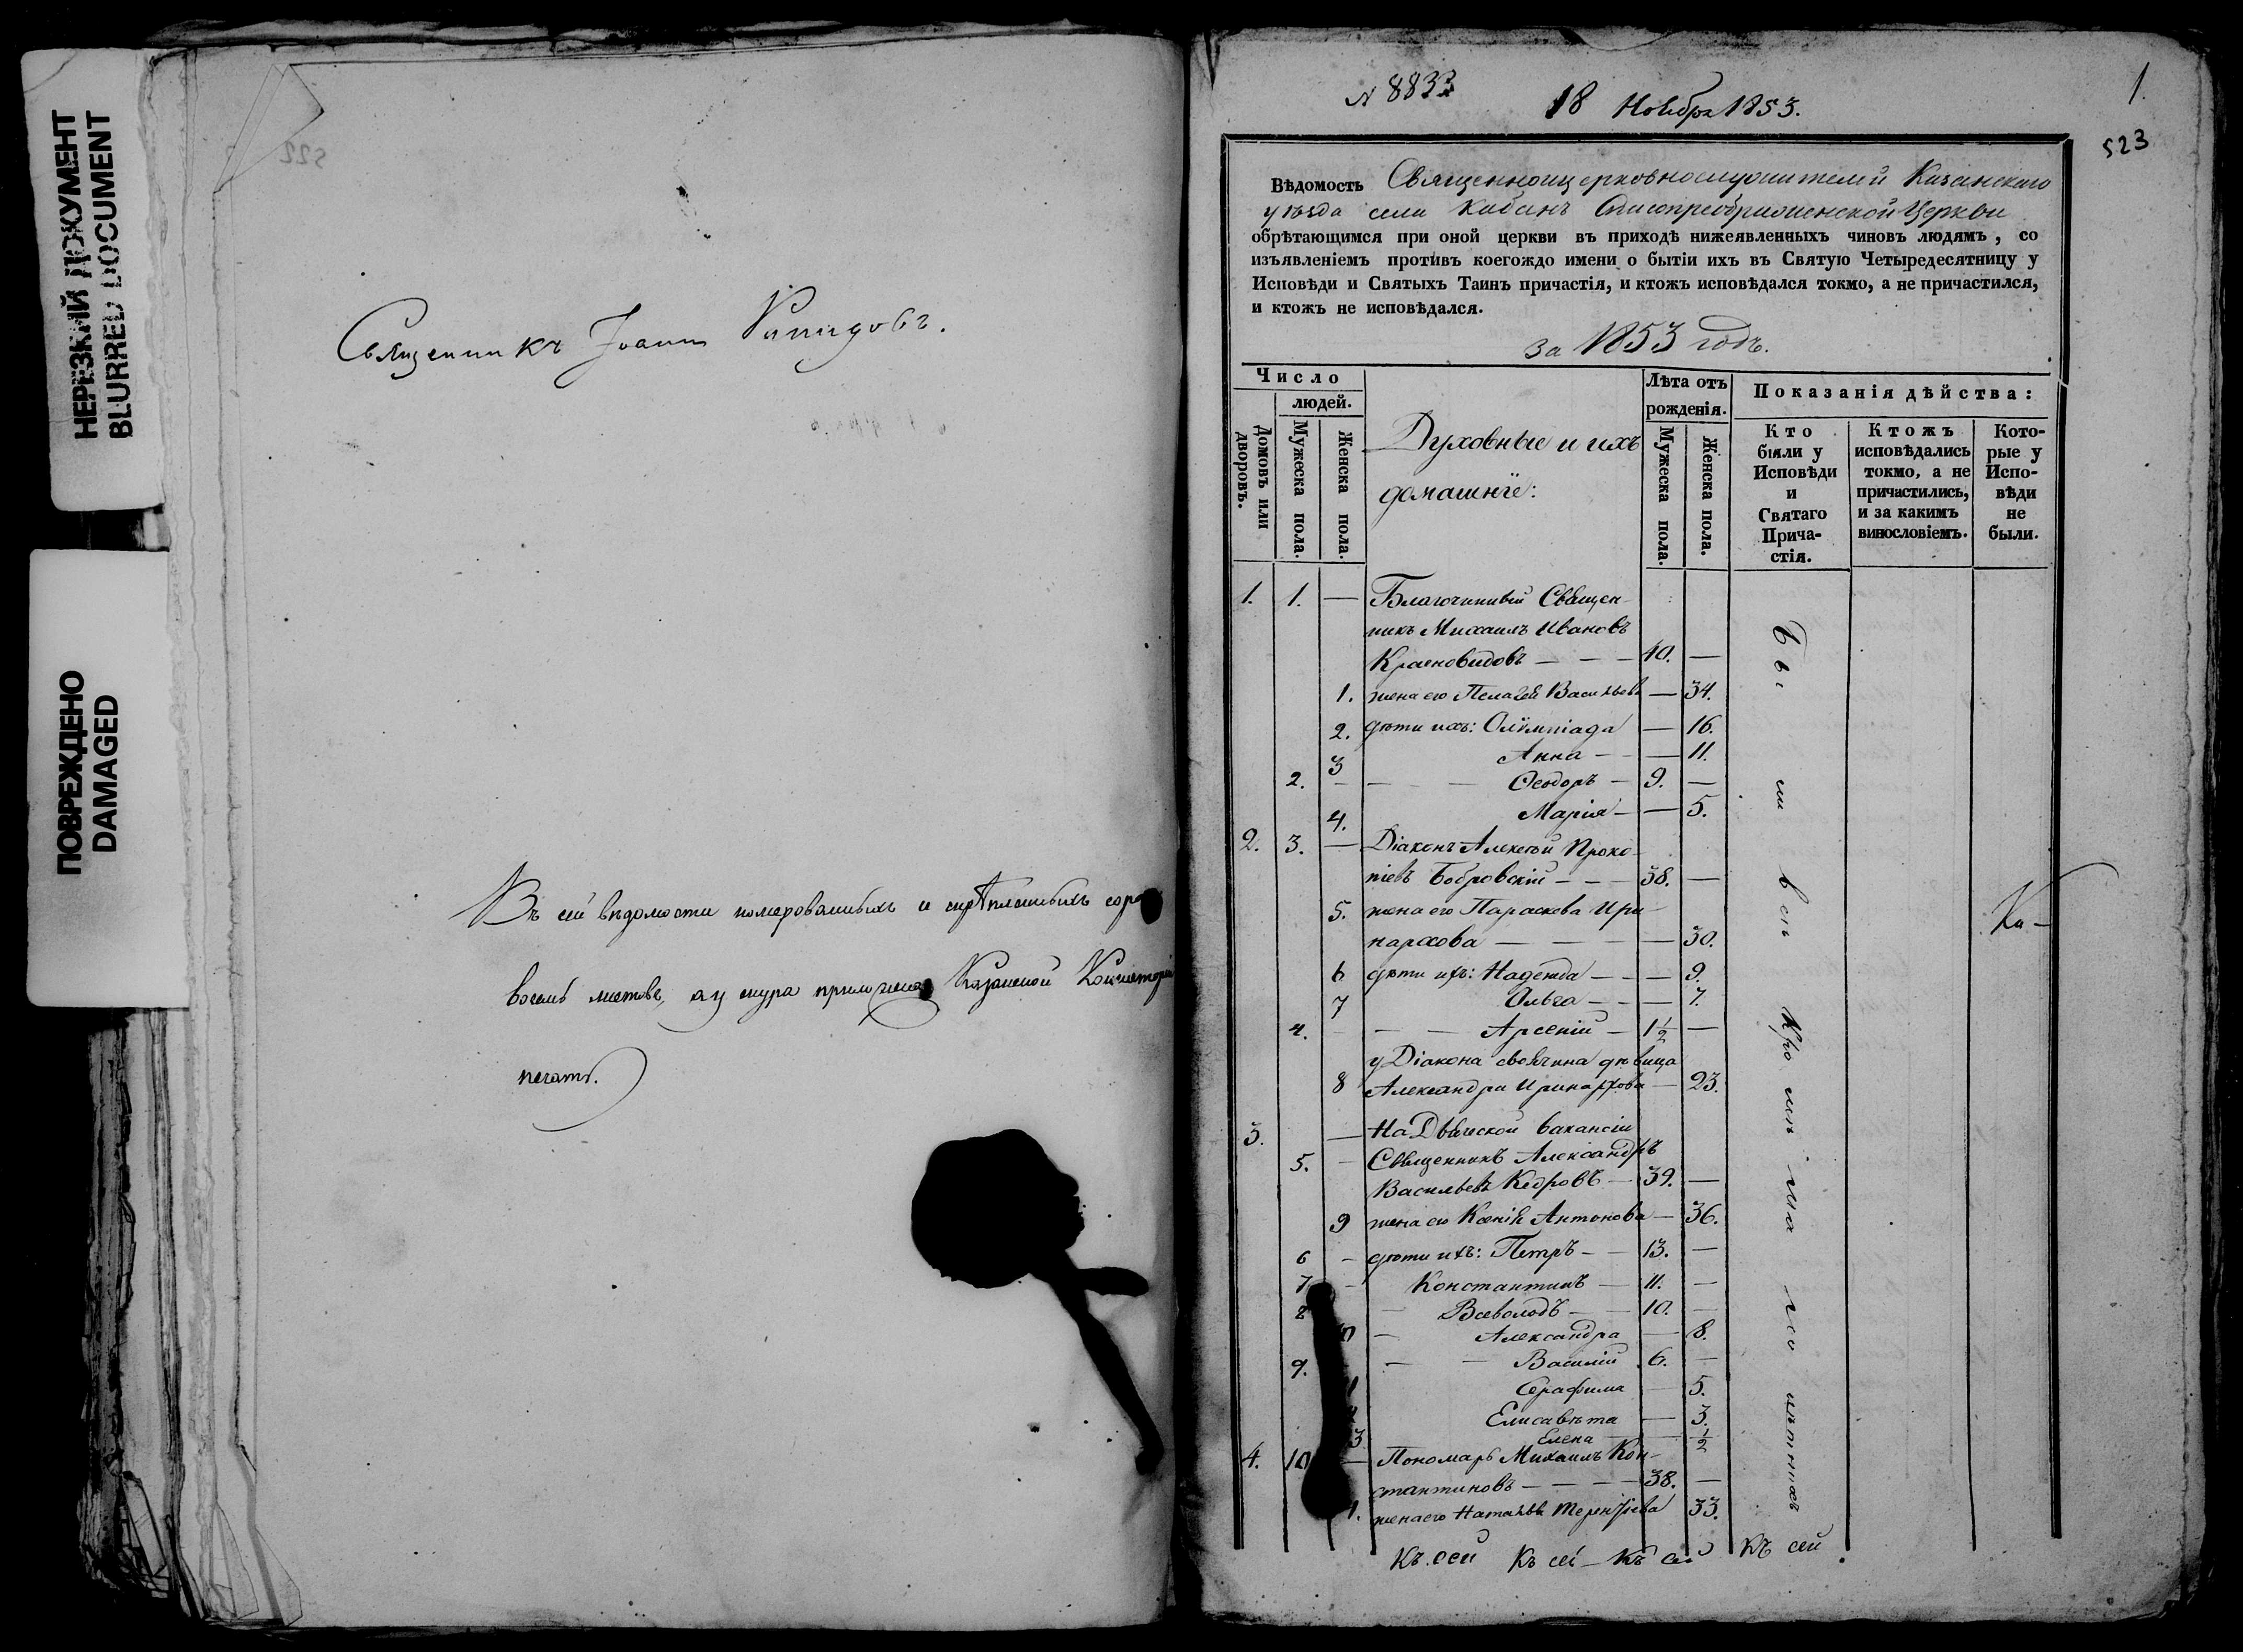 НЕРЕЗКИЙ ДОКУМЕНТ
BLURRED DOCUMENT
ПОВРЕЖДЕНО
DAMAGED
522
Священникъ Іоаннъ
Въ сей вѣдомости номерованныхъ и скрѣпленныхъ соро
восемь листовъ, а у шнура приложена Казанской Консисторіи
печать.
N 8833
18 Ноября 1853.
1.
523
Вѣдомость Священноцерковнослужителей Казанскаго
уѣзда села Кабанъ Спасопреображенской Церкви
обрѣтающимся при оной церкви въ приходѣ нижеявленныхъ чиновъ людямъ, со
изъявленіемъ противъ коегождо имени о бытіи ихъ въ Святую Четыредесятницу у
Исповѣди и Святыхъ Таинъ причастія, и ктожъ исповѣдался токмо, а не причастился,
и ктожъ не исповѣдался.
за 1853 годъ.
Число
людей.
Домовъ или дворовъ.
Мужеска пола.
Женска пола.
Духовные и ихъ
домашніе:
Лѣта отъ
рожденія.
Мужеска пола.
Женска пола.
Показанія дѣйства:
Кто
были у
Исповѣди
и
Святаго
Прича-
стія.
Ктожъ
исповѣдались
токмо, а не
причастились,
и за какимъ
винословіемъ.
Кото-
рые у
Испо-
вѣди
не
были.
1. 1. — Благочинный Священ
никъ Михаилъ Ивановъ
Красновидовъ — — — 40. —
1. жена его Пелагея Васильева — 34.
2. дѣти ихъ: Олимпіада — 16.
3 Анна — — 11.
2. — — — Ѳеодоръ — 9. —
4. Марія — — 5.
2. 3. — Діаконъ Алексѣй Проко-
піевъ Бобровскій — — — 38. —
5. жена его Параскева Ири-
нархова — — — — 30.
6 дѣти ихъ: Надежда — — — 9.
7 Ольга — — — 7.
4. — — — Арсеній — 1 1/2 —
у Діакона своячина дѣвица
8 Александра Иринархова — 23.
3. — На Дьяческой вакансіи
5. — Священникъ Александръ
Васильевъ Кедровъ — 39. —
9 жена его Ксенія Антонова — 36.
6 — дѣти ихъ: Петръ — — 13. —
7 — Константинъ — 11. —
8 — Всеволодъ — — 10. —
— Александра — 8.
9. — — Василій 6. —
Серафима — 5.
Елисавета — 3.
3 Елена — — 1/2
4. 10 — Пономарь Михаилъ Кон-
стантиновъ — — — — 38. —
1. жена его Наталья Терентіева 33.
Были всѣ Кромѣ малолѣтнихъ
Къ сей Къ сей — Къ сей Къ сей